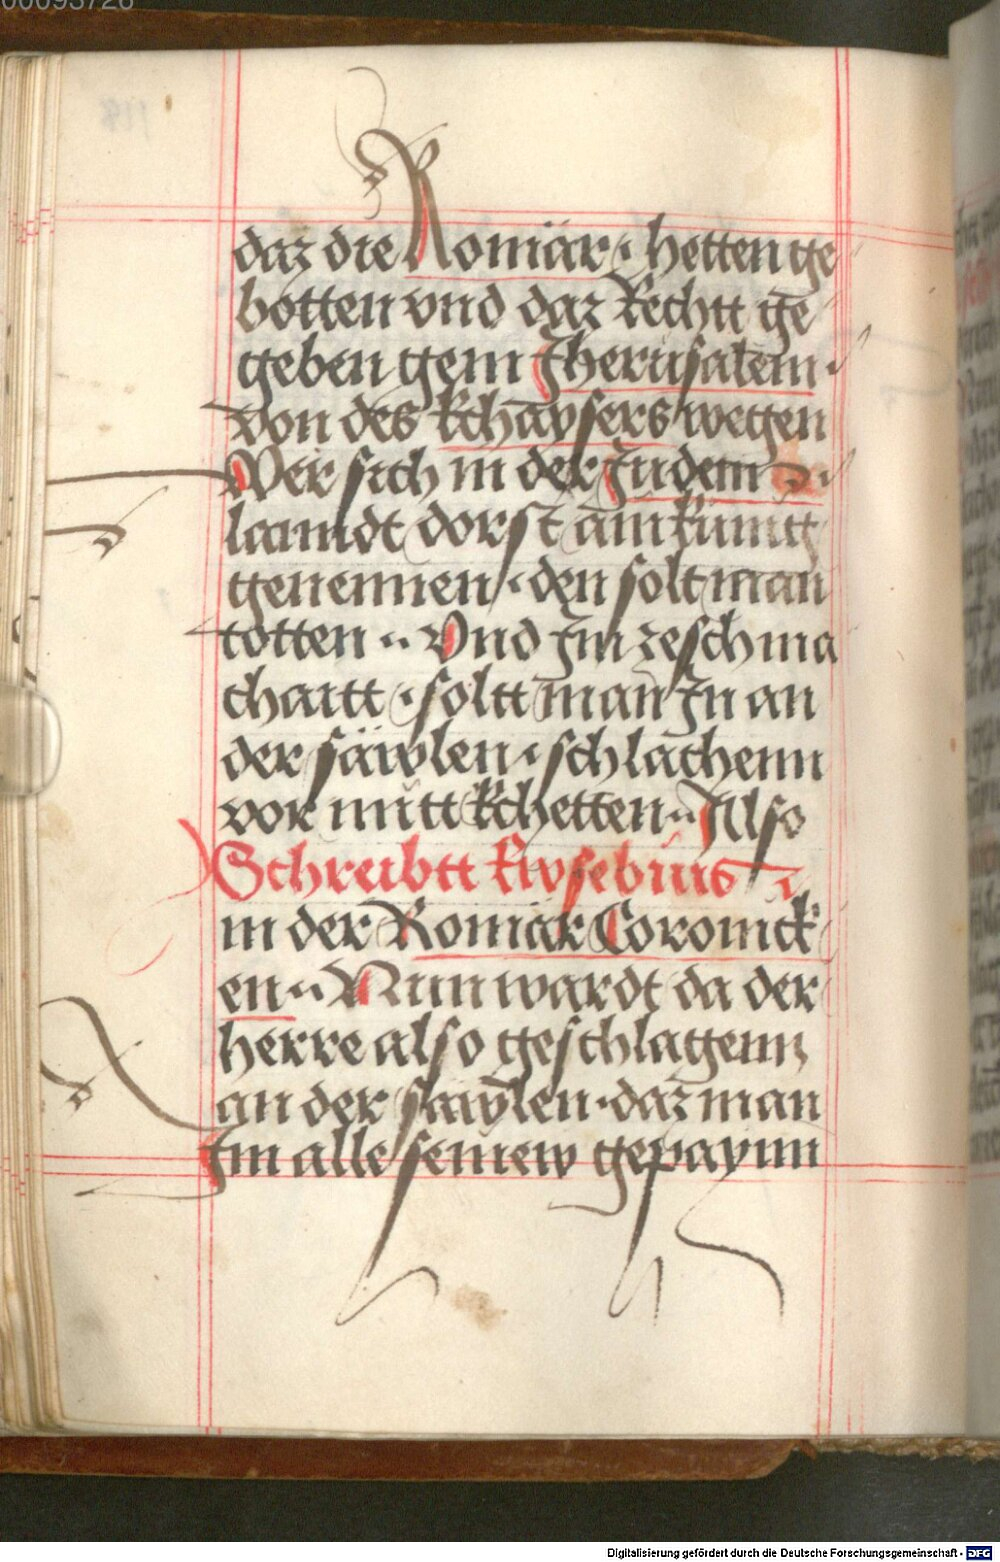 00095726
daz die Romär · hetten ge
botten vnd daz Rechtt ge
geben gem Jherusalem ·
von des kchaysers wegen
Wer sich in der Juden
lanndt dorst ain kunig
genennen · den solt man
totten ·· Vnd Im ze schma
chaitt · soltt man In an
der säwlen · schlachenn
vor mitt kchetten ·· Also
Schreibtt Ewsebius
in der Romär Coronick
en ·· Nun wardt da der
herre also geschlagenn
an der säwlen · daz man
Im alle seinew gepaynn
Digitalisierung gefördert durch die Deutsche Forschungsgemeinschaft - DFG